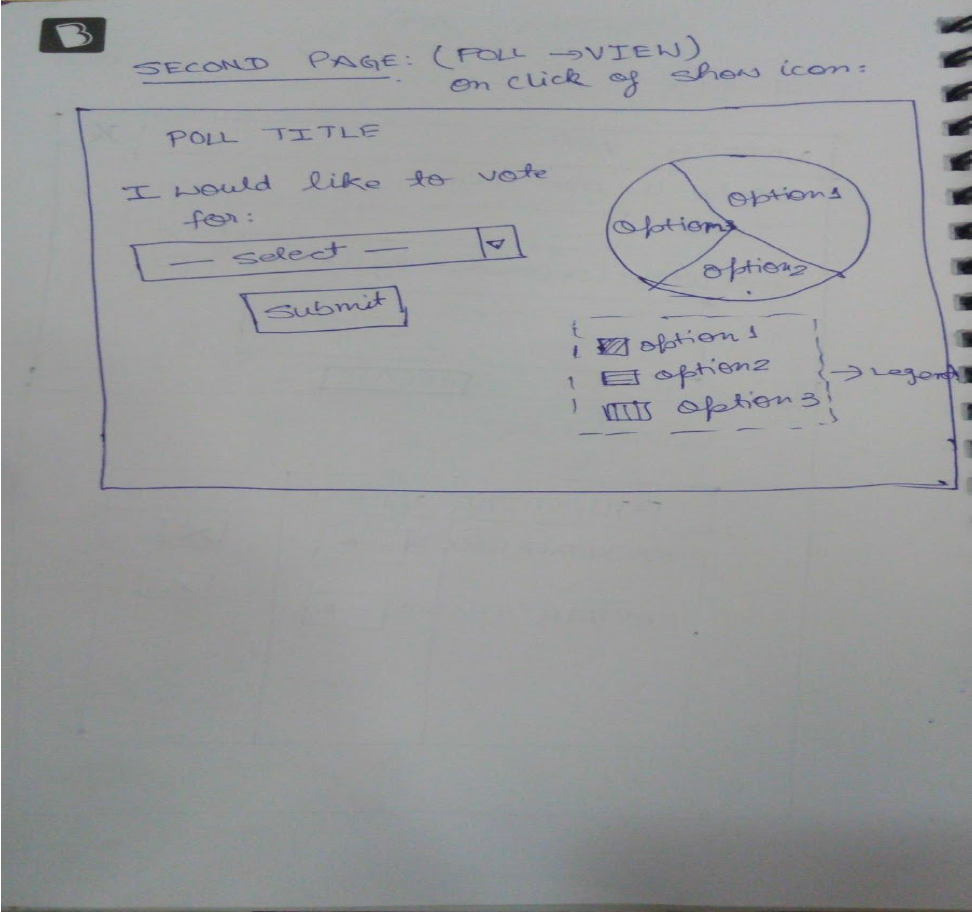 B
SECOND PAGE: (POLL → VIEW)
on click of show icon:
POLL TITLE
I would like to vote
for:
— Select —
Submit
option1
option3
option2
option1
option2
option3
→ Legend